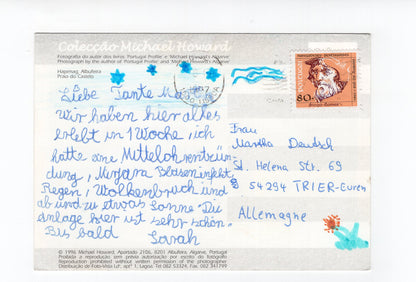 Colecção Michael Howard
Fotografia do autor dos livros 'Portugal Profile' e 'Michael Howard's Algarve'
Photograph by the author of 'Portugal Profile' and 'Michael Howard's Algarve'
Hapimag, Albufeira
Praia do Castelo
Liebe Tante
Wir haben hier alles
erlebt in 1 Woche, ich
hatte eine Mittelohrentzün
dung, Mirjara Blaseninfekt,
Regen, Wolkenbruch und
ab und zu etwas Sonne. Die
Anlage hier ist sehr schön.
Bis bald
Sarah
PORTUGAL
80
Frau
Martha Deutsch
St. Helena Str. 69
54294 TRIER-Euren
Allemagne
© 1996 Michael Howard, Apartado 2106, 8201 Albufeira, Algarve, Portugal
Proibida a reprodução sem prévia autorização por escrito do fotógrafo
Reproduction prohibited without written permission of the photographer
Distribuição de Foto-Vista Lda, apt° 1, Lagoa. Tel 082 53324, Fax. 082 341799